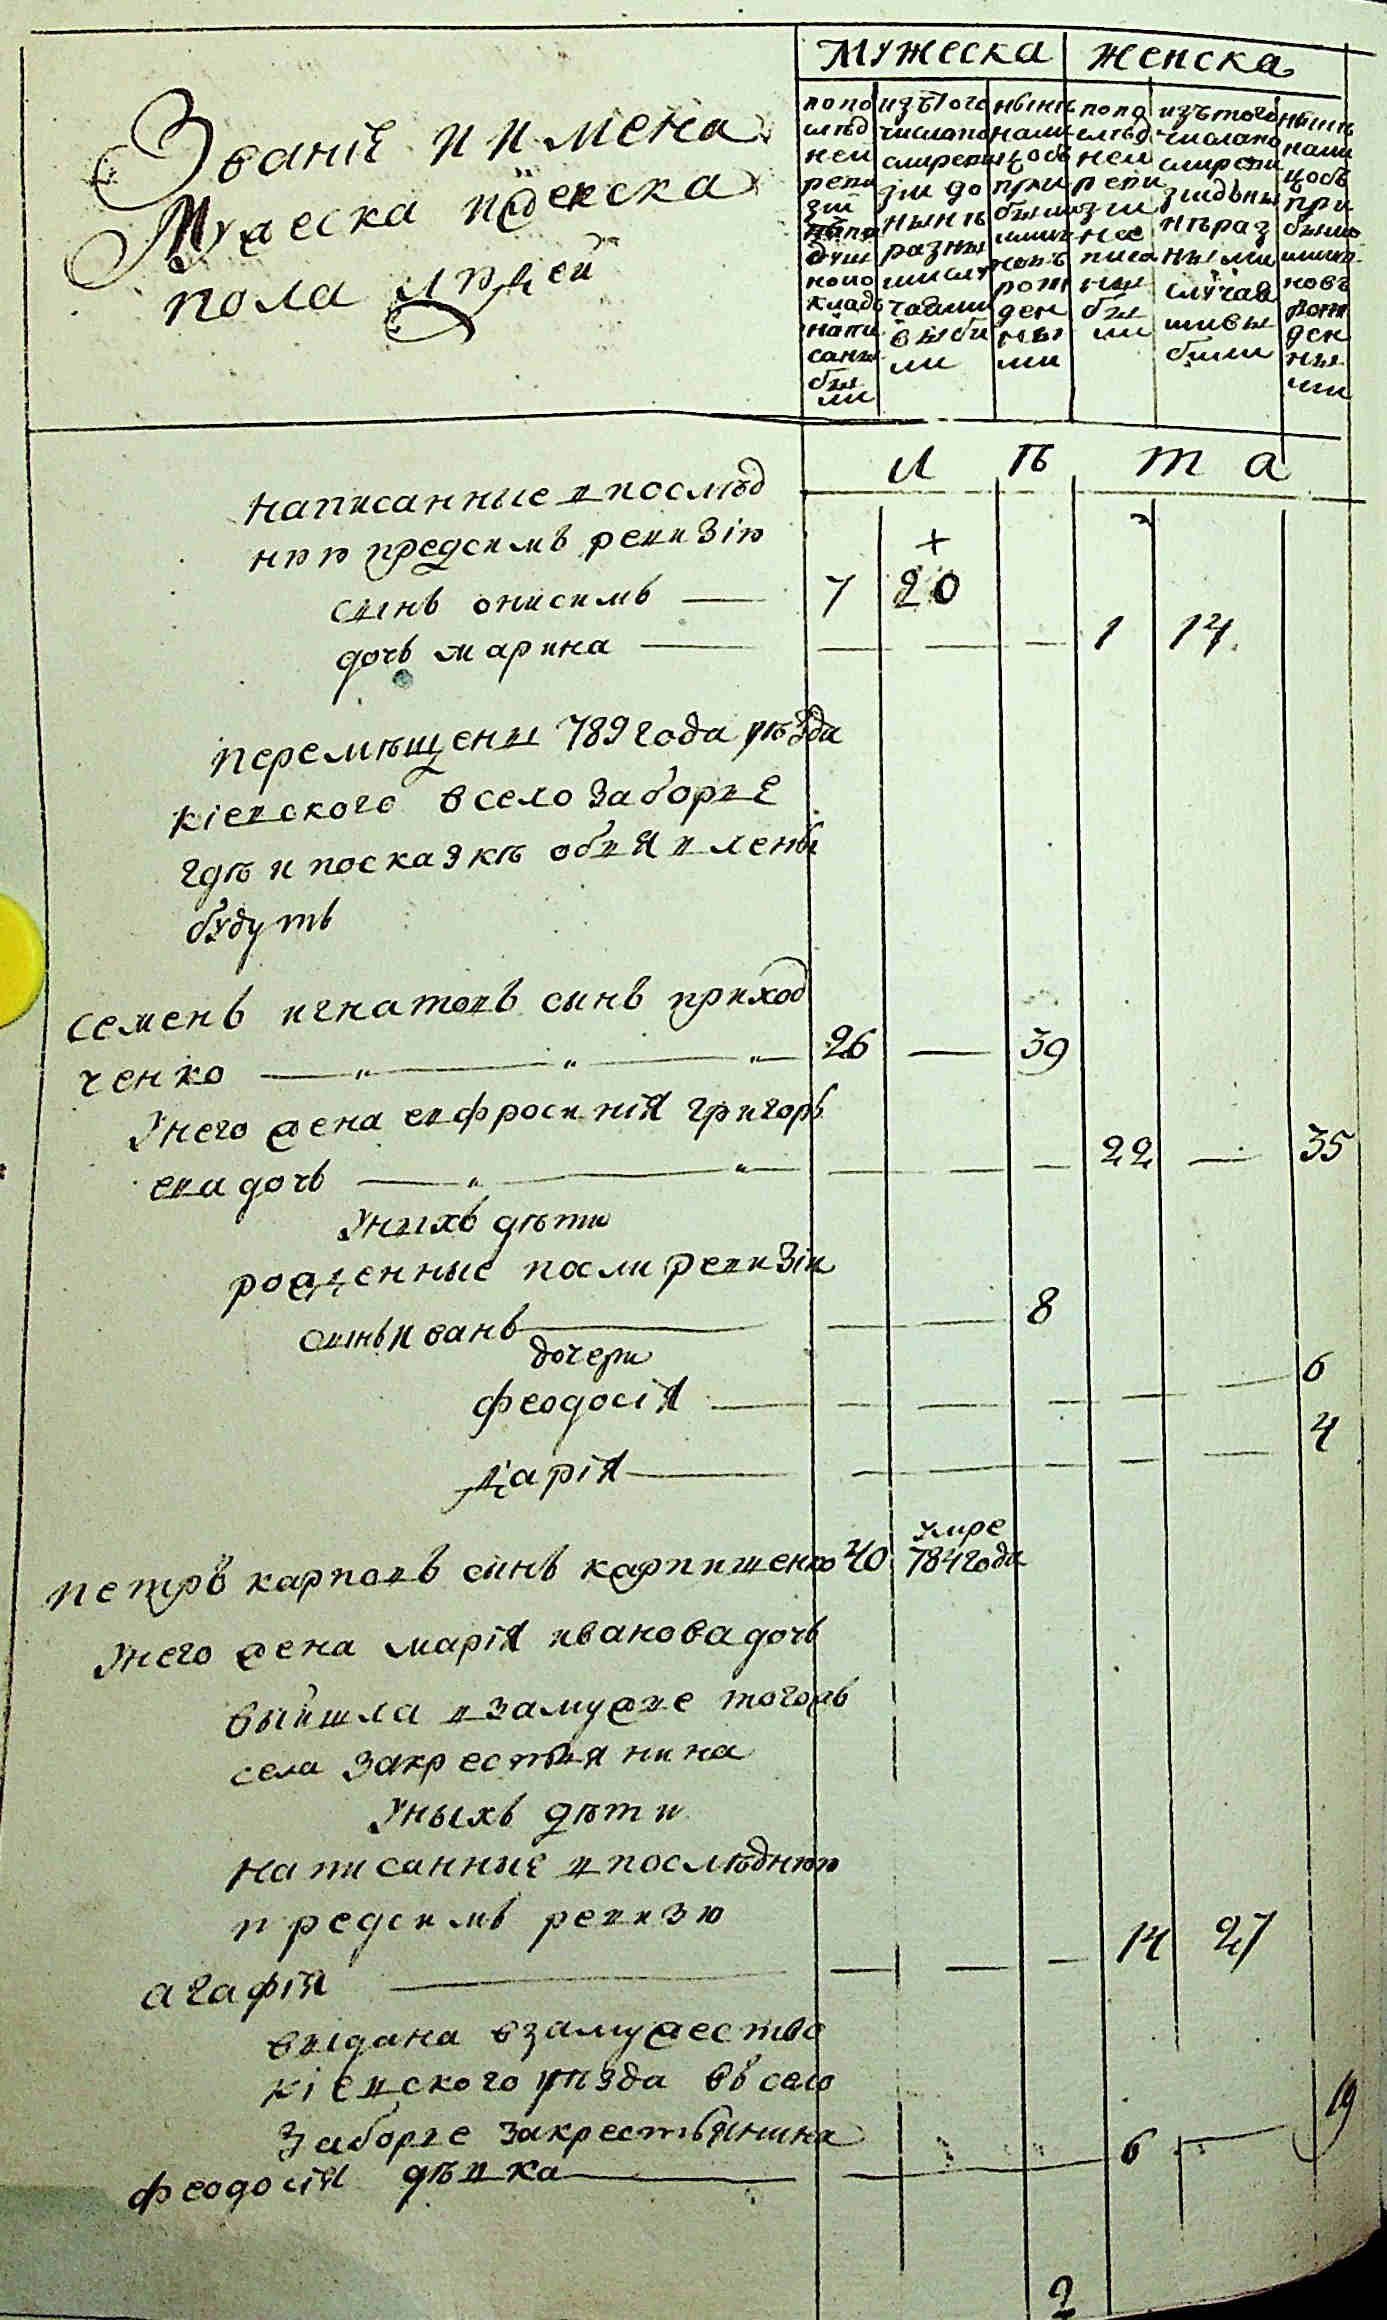 Мужеска женска
Званіе и имена
Мужеска иженска
пола людей
попо слѣд ней реви зіи напо душ ному окладу напи саны бы ли
изътого числапо слѣревизіи до нынѣ разны ми слу чаями выбы ли
нынѣ нали цо объ при былы ми и новъ рож ден ны ми
попо слѣд ней реви зіи нее писа ны бы ли
изътого числапо слѣреви зіидоны нѣраз ными случая мивы были
нынѣ нали цообъ при былы ми и новъ рож ден ны ми
Л Ѣ Т А
написанные впослѣд
нюю предсимъ ревизію +
сынъ онисимъ — 7 20
дочь марина — 1 14.
перемѣщены 789 года уѣзда
кіевского всело заборье
гдѣ и посказкѣ объявлены
будутъ
семенъ игнатовъ сынъ приход
ченко — 26 — 39
Унего жена евфросинія григорь
ева дочь — 22 — 35
Уныхъ дѣти
рожденные посли ревизіи
сынъ иванъ — 8
дочери
феодосія — 6
Дарія — 4
умре
петръ карповъ сынъ карпишенко 40 784 года
Унего жена марія иванова дочь
вышла взамужье тогожъ
села закрестьянина
Уныхъ дѣти
написанные впослѣднюю
предсимъ ревизю
агафія — 14 27
выдана взамужество
кіевского уѣзда въ село
Заборье закрестьянина
феодосія дѣвка — 6 — 19
2